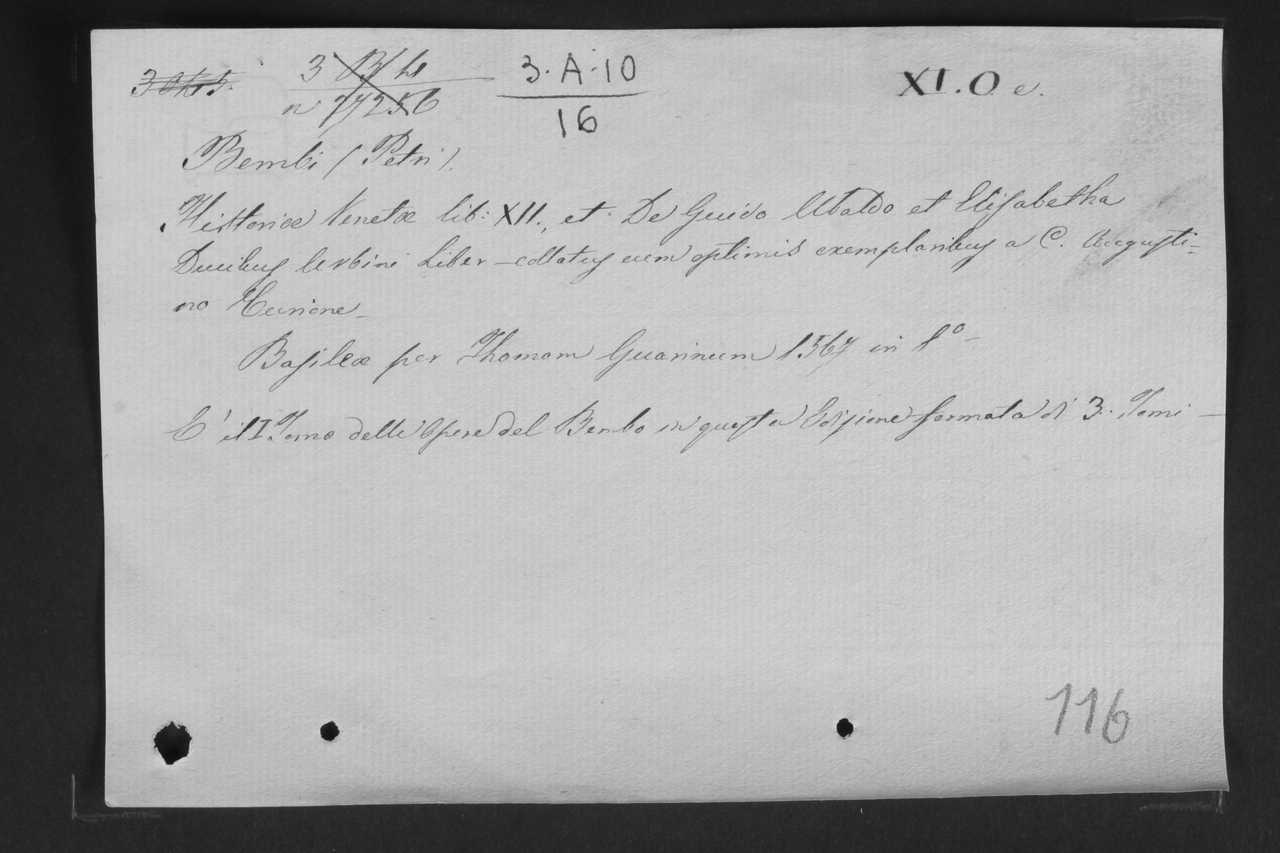 3. A. 10
16
XI. O e.
Bembi (Petri).
Historiæ Venetæ lib: XII., et. De Guido Ubaldo et Elisabetha
Ducibus Urbini Liber – collatus cum optimis exemplaribus a C. Augusti=
no Curione –
Basileæ per Thomam Guarinum 1567 in 8º –
E' il I Tomo delle Opere del Bembo in questa Edizione formata di 3. Tomi –
116